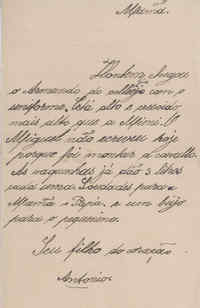 Mamã.
Hontem chegou
o Armando do collegio com o
uniforme. Está alto e crescido
mais alto que a Mimi. O
Miguel não escreveu hoje
porque foi montar a cavallo.
As vaquinhas já dão 3 litros
cada uma. Saudades para
Mamã e Papá. e um beijo
para o pequenino.
Seu filho do coração.
Antonio.